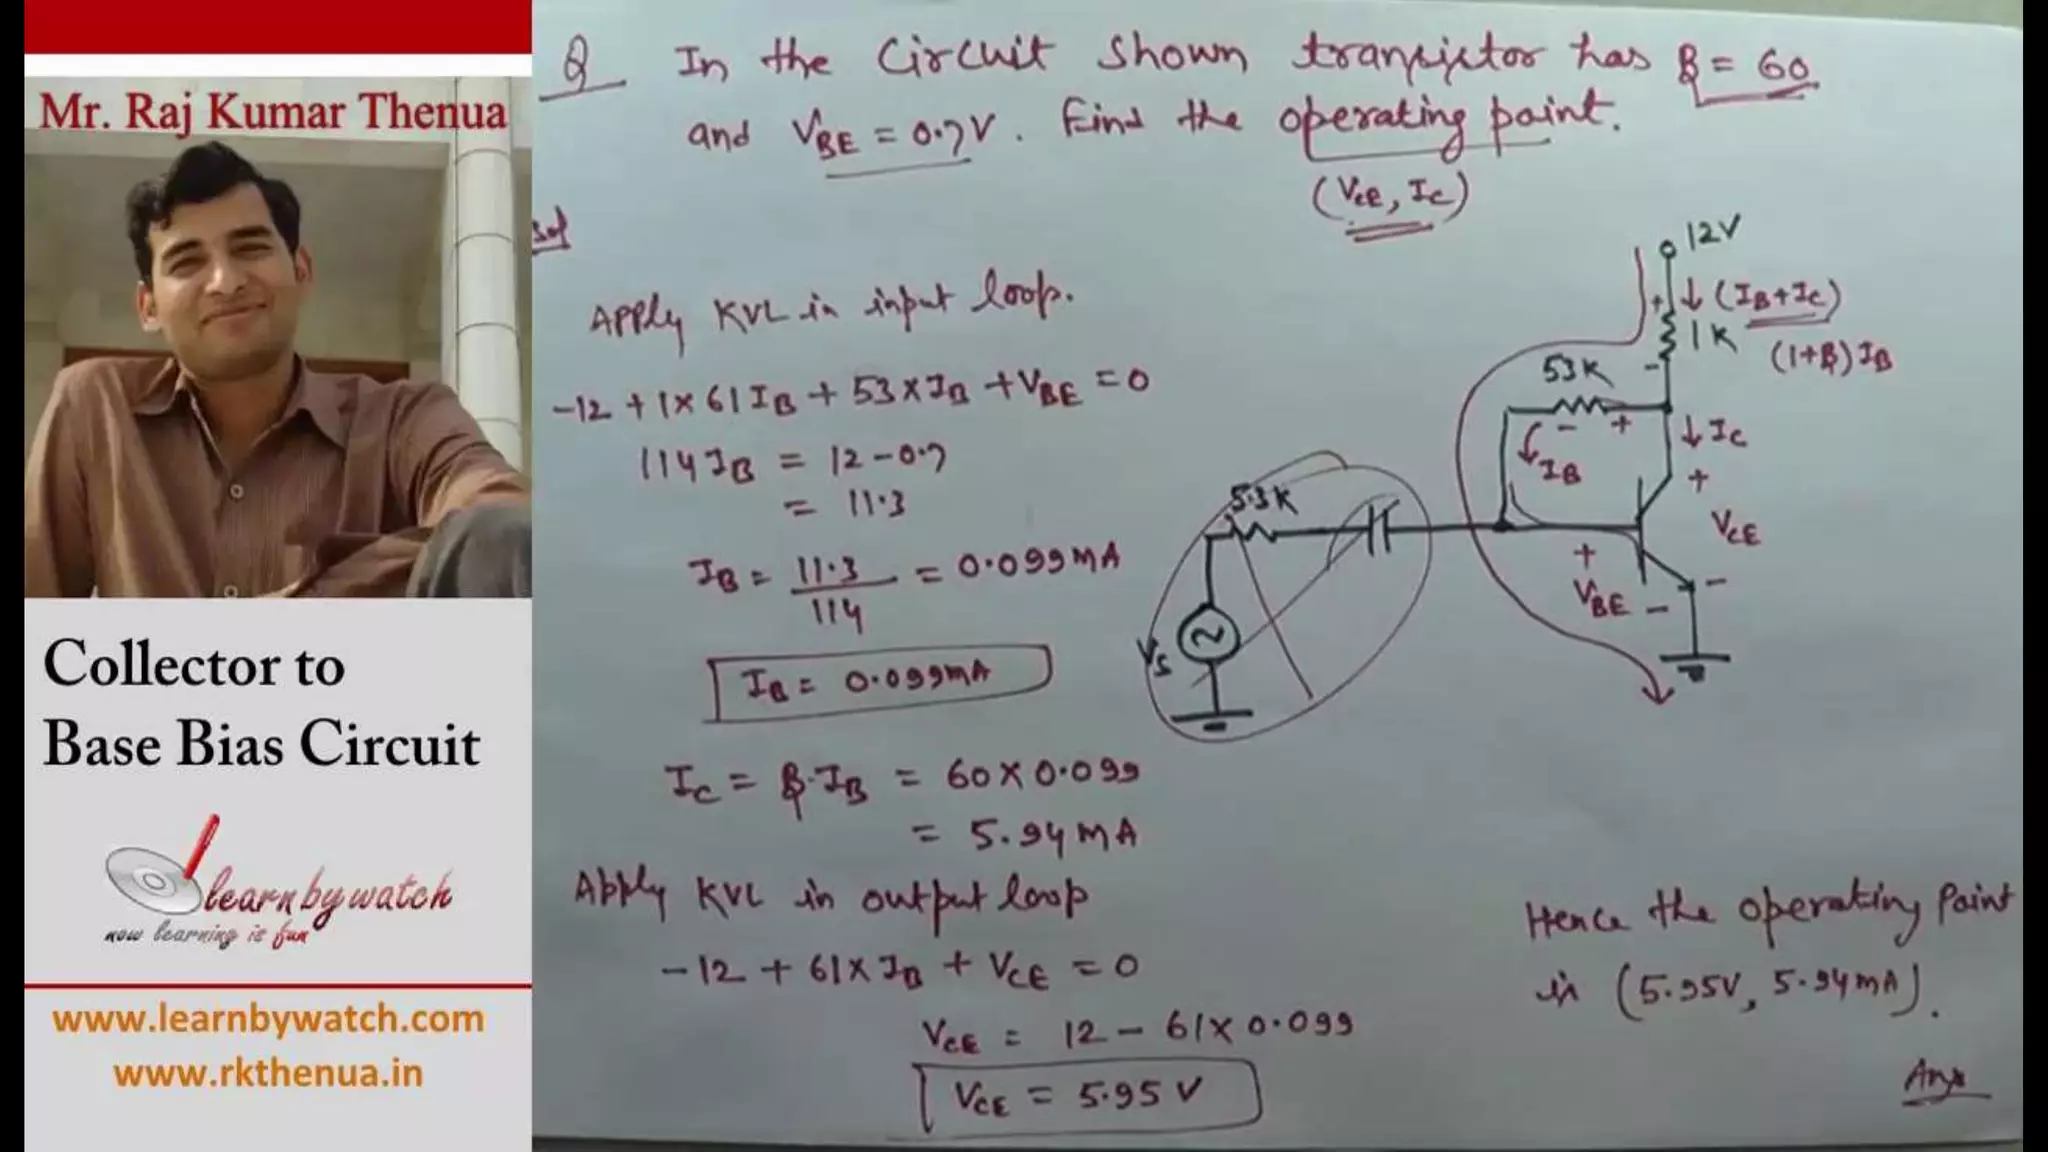 Mr. Raj Kumar Thenua
Collector to
Base Bias Circuit
learn by watch
now learning is fun
www.learnbywatch.com
www.rkthenua.in
Q In the Circuit Shown transistor has β = 60
and VBE = 0.7V. Find the operating point.
(VCE, IC)
Sol
Apply KVL in input loop.
-12 + 1×61IB + 53×IB + VBE = 0
114IB = 12-0.7
= 11.3
IB = 11.3/114 = 0.099mA
IB = 0.099mA
IC = β·IB = 60×0.099
= 5.94mA
Apply KVL in output loop
-12 + 61×IB + VCE = 0
VCE = 12 - 61×0.099
VCE = 5.95 V
12V
+ ↓ (IB+IC)
1K
(1+β)IB
-
53K
- +
↓ IC
↓ IB
+
VCE
-
+
VBE
-
5.3K
Vs
Hence the operating Point
is (5.95V, 5.94mA).
Ans